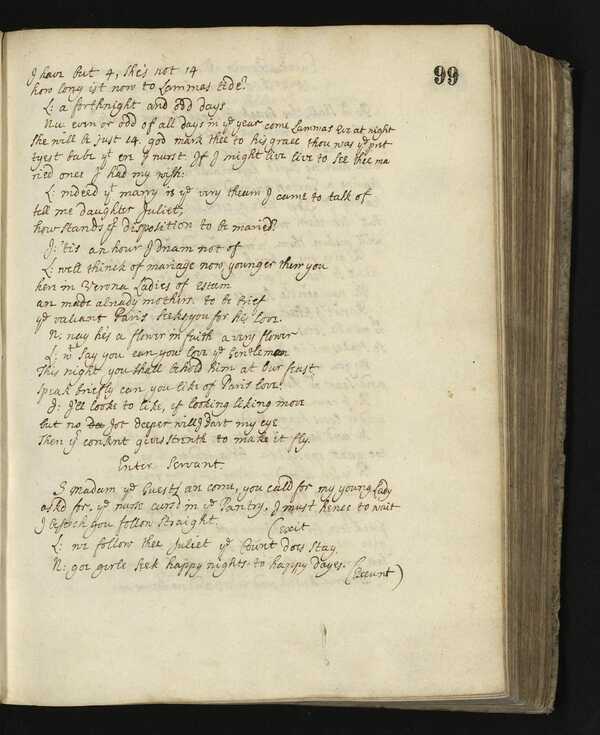 99
I have but 4, she's not 14
how long ist now to Lammas tide?
L: a forthnight and odd days
Nu: even or odd of all days in ye year come Lammas Eve at night
she will be just 14. god mark thee to his grace thou wast ye prit
tyest babe yt ere I nurst If I might live live to see thee ma
ried once I had my wish:
L: indeed yt marry is ye very theam I came to talk of
tell me daughter Juliet,
how stands yr disposition to be maried?
J: 'tis an hour I dream not of
L: well thinck of mariage now younger then you
here in Verona Ladies of esteem
are made already mothers to be brief
ye valiant Paris seeks you for his love.
N: nay he's a flower in faith a very flower
L: wt say you can you love ye Gentleman
This night you shall behold him at our feast
speak briefly can you like of Paris love?
J: I'll looke to like, if looking liking move
but no Jot deeper will I dart my eye
Then yr consent gives strenth to make it fly.
Enter Servant
S Madam ye Guests are come, you calld for my young Lady
askd for, ye nurse cursd in ye Pantry, I must hence to wait
I beseech you follow straight.
(exit
L: we follow thee Juliet ye Count does stay.
N: goe girle seek happy nights to happy dayes.
(Exeunt)